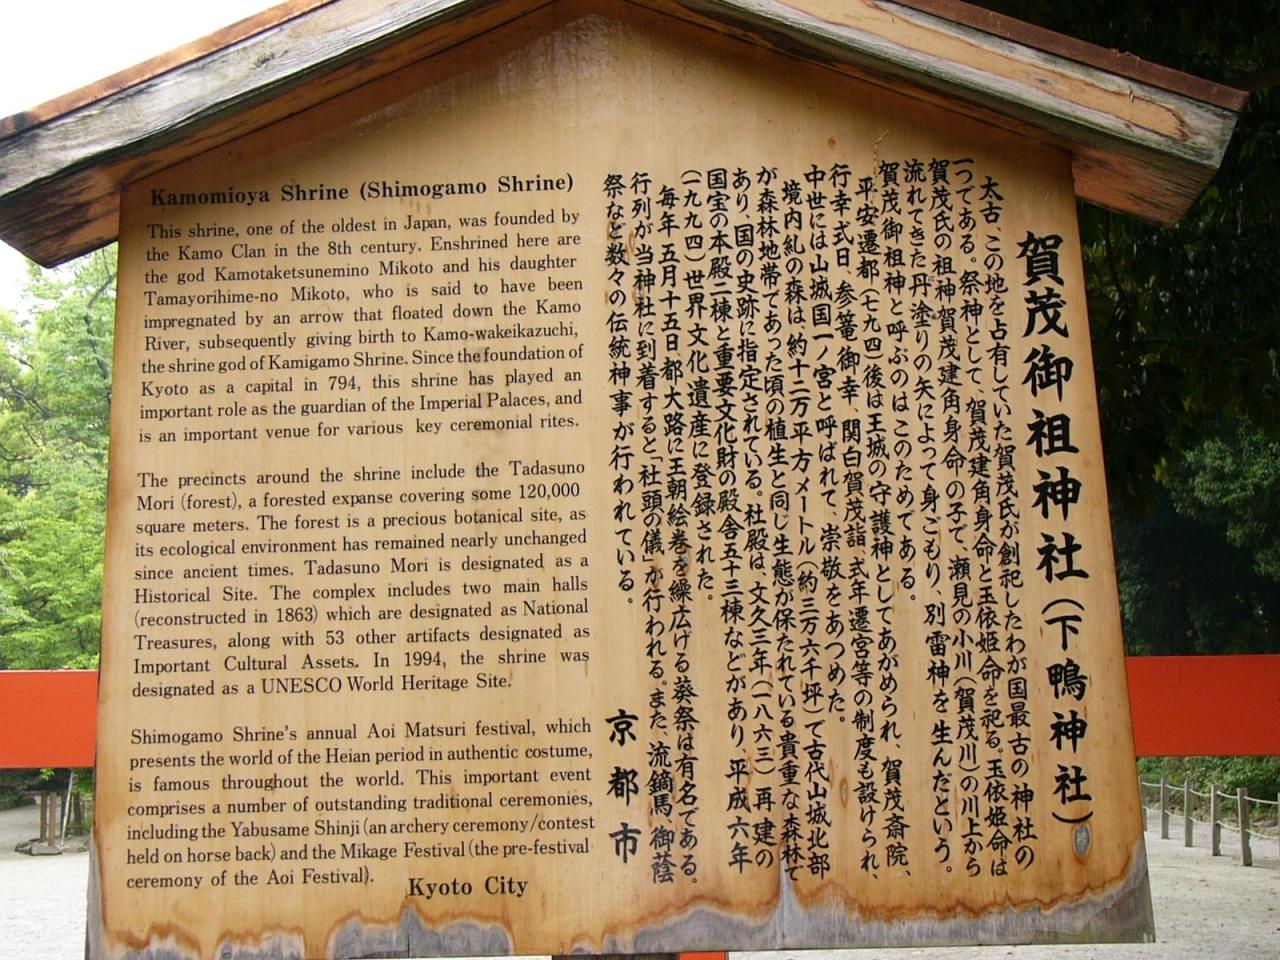 Kamomioya Shrine (Shimogamo Shrine)
This shrine, one of the oldest in Japan, was founded by
the Kamo Clan in the 8th century. Enshrined here are
the god Kamotaketsunemino Mikoto and his daughter
Tamayorihime-no Mikoto, who is said to have been
impregnated by an arrow that floated down the Kamo
River, subsequently giving birth to Kamo-wakeikazuchi,
the shrine god of Kamigamo Shrine. Since the foundation of
Kyoto as a capital in 794, this shrine has played an
important role as the guardian of the Imperial Palaces, and
is an important venue for various key ceremonial rites.
The precincts around the shrine include the Tadasuno
Mori (forest), a forested expanse covering some 120,000
square meters. The forest is a precious botanical site, as
its ecological environment has remained nearly unchanged
since ancient times. Tadasuno Mori is designated as a
Historical Site. The complex includes two main halls
(reconstructed in 1863) which are designated as National
Treasures, along with 53 other artifacts designated as
Important Cultural Assets. In 1994, the shrine was
designated as a UNESCO World Heritage Site.
Shimogamo Shrine's annual Aoi Matsuri festival, which
presents the world of the Heian period in authentic costume,
is famous throughout the world. This important event
comprises a number of outstanding traditional ceremonies,
including the Yabusame Shinji (an archery ceremony/contest
held on horse back) and the Mikage Festival (the pre-festival
ceremony of the Aoi Festival).
Kyoto City
賀茂御祖神社(下鴨神社)
太古、この地を占有していた賀茂氏が創祀したわが国最古の神社の
一つである。祭神として、賀茂建角身命と玉依姫命を祀る。玉依姫命は
賀茂氏の祖神賀茂建角身命の子で、瀬見の小川(賀茂川)の川上から
流れてきた丹塗りの矢によって身ごもり、別雷神を生んだという。
賀茂御祖神と呼ぶのはこのためてある。
平安遷都(七九四)後は王城の守護神としてあがめられ、賀茂斎院、
行幸式日、参篭御幸、関白賀茂詣、式年遷宮等の制度も設けられ、
中世には山城国一ノ宮と呼ばれて、崇敬をあつめた。
境内糺の森は、約十二万平方メートル(約三万六千坪)で古代山城北部
が森林地帯であった頃の植生と同じ生態が保たれている貴重な森林で
あり、国の史跡に指定されている。社殿は、文久三年(一八六三)再建の
国宝の本殿二棟と重要文化財の殿舎五十三棟などがあり、平成六年
(一九九四)世界文化遺産に登録された。
毎年五月十五日、都大路に王朝絵巻を繰広げる葵祭は有名である。
行列が当神社に到着すると、社頭の儀が行われる。また、流鏑馬、御蔭
祭など数々の伝統神事が行われている。
京都市